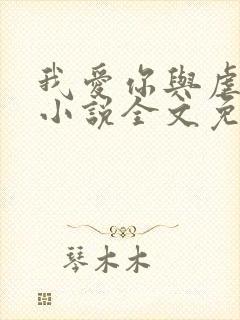 我爱你與虐
小説全文免
琴木木